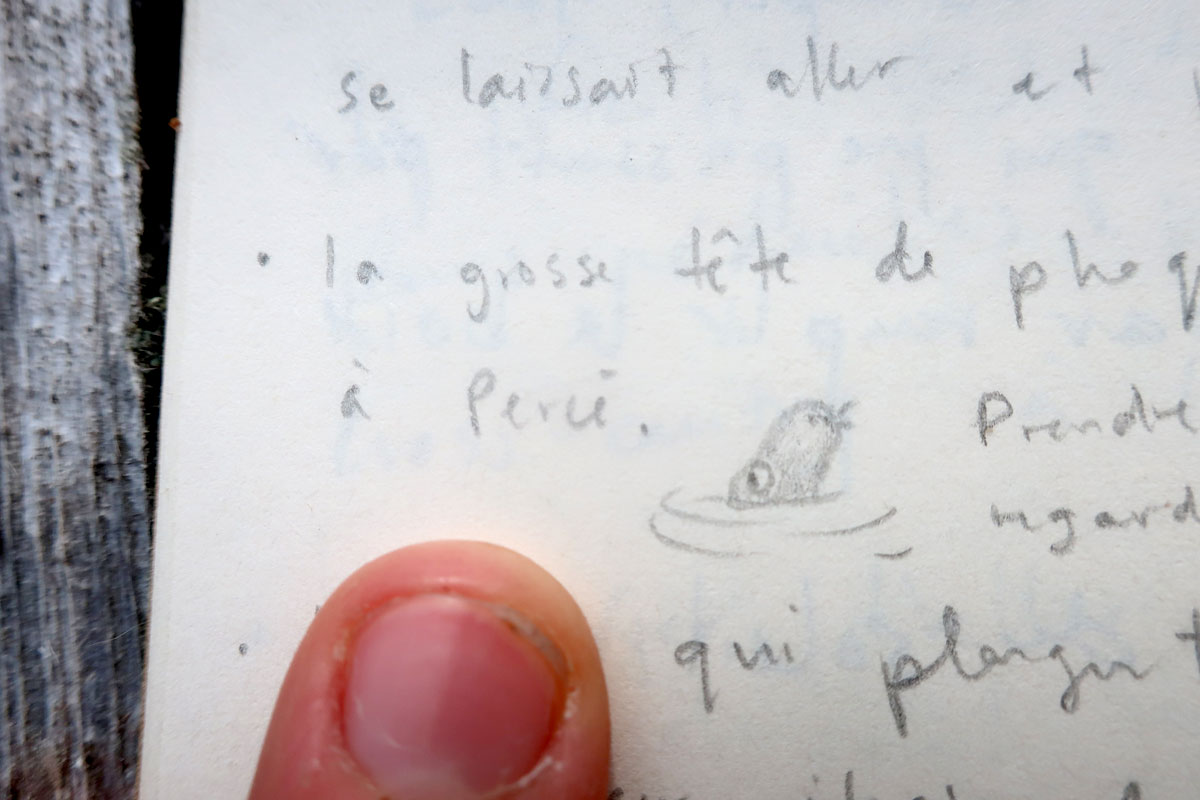 se laissait aller et
• la grosse tête de phoq
à Percé. Prendre
regard
• qui plonger